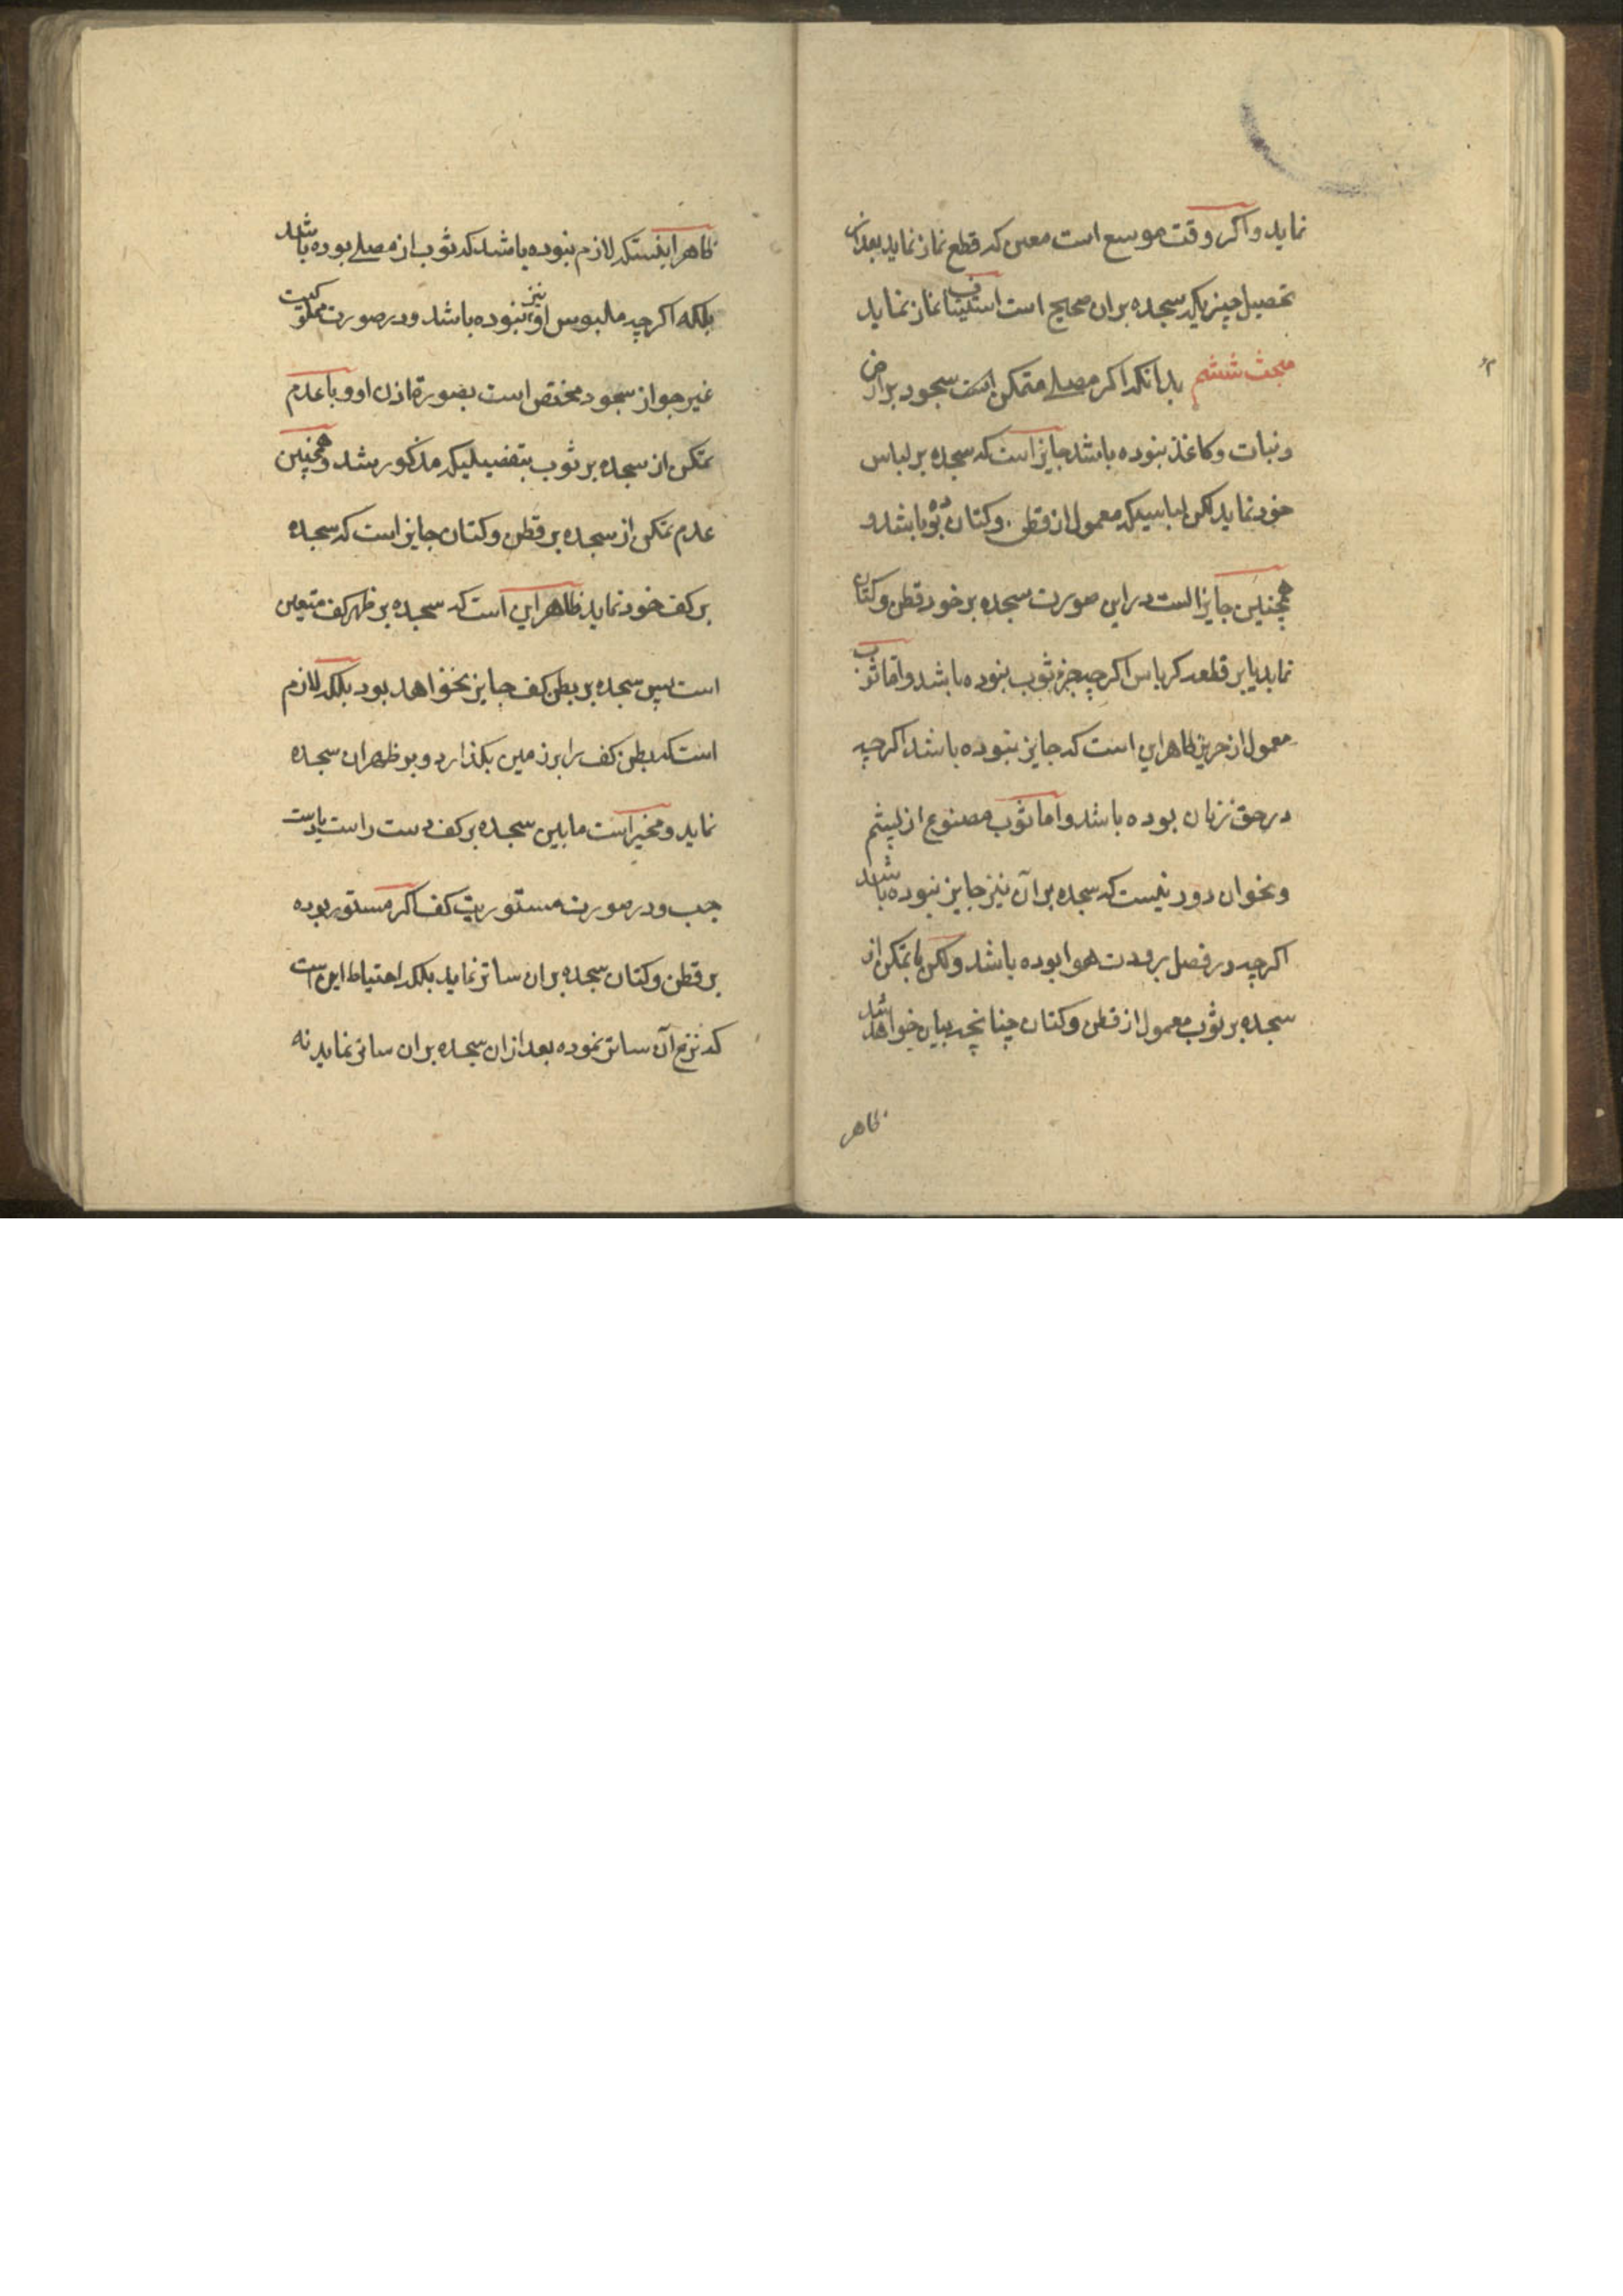 نماید و اگر وقت موسع است معین که قطع نماز نماید بعد از آن
تحصیل چیزیکه سجده بران صحیح است استیناف نماز نماید
مبحث ششم بدانکه اکر مصلے متمکن از سجود بر ارض
و نبات و کاغذ نبوده باشد جایز است که سجده بر لباس
خود نماید لکن لباسیکه معمول از قطن و کتان بوده باشد و
همچنین جایز است در این صورت سجده بر خود قطن و کتان
نماید یا بر قطعه کرباس اکرچه جزء ثوب نبوده باشد و اما ثوب
معمول از حریر ظاهر این است که جایز نبوده باشد اکرچه
در حق زنان بوده باشد و اما ثوب مصنوع از پشم
و نحوان دور نیست که سجده بر آن نیز جایز نبوده باشد
اکرچه در فصل برودت هوا بوده باشد ولکن با تمکن از
سجده بر ثوب معمول از قطن و کتان چنانچه بیان خواهد شد
ظاهر
ظاهر اینستکه لازم نبوده باشد که ثوب از مصلے بوده باشد
بلکه اکرچه ملبوس او نیز نبوده باشد و در صورت مملوکیت
غیر جواز سجود مختص است بصورة اذن او و با عدم
تمکن از سجده بر ثوب بتفصیلیکه مذکور شد و همچنین
عدم تمکن از سجده بر قطن و کتان جایز است که سجده
بر کف خود نماید ظاهر این است که سجده بر ظهر کف متعین
است پس سجده بر بطن کف جایز نخواهد بود بلکه لازم
است که بطن کف را بر زمین بکذارد و بر ظهر ان سجده
نماید و مخیر است ما بین سجده بر کف دست راست یا دست
چپ و در صورت مستوریت کف اکر مستور بوده
بر قطن و کتان سجده بران ساتر نماید بلکه احتیاط این است
که نزع آن ساتر نموده بعد ازان سجده بران ساتر نماید نه